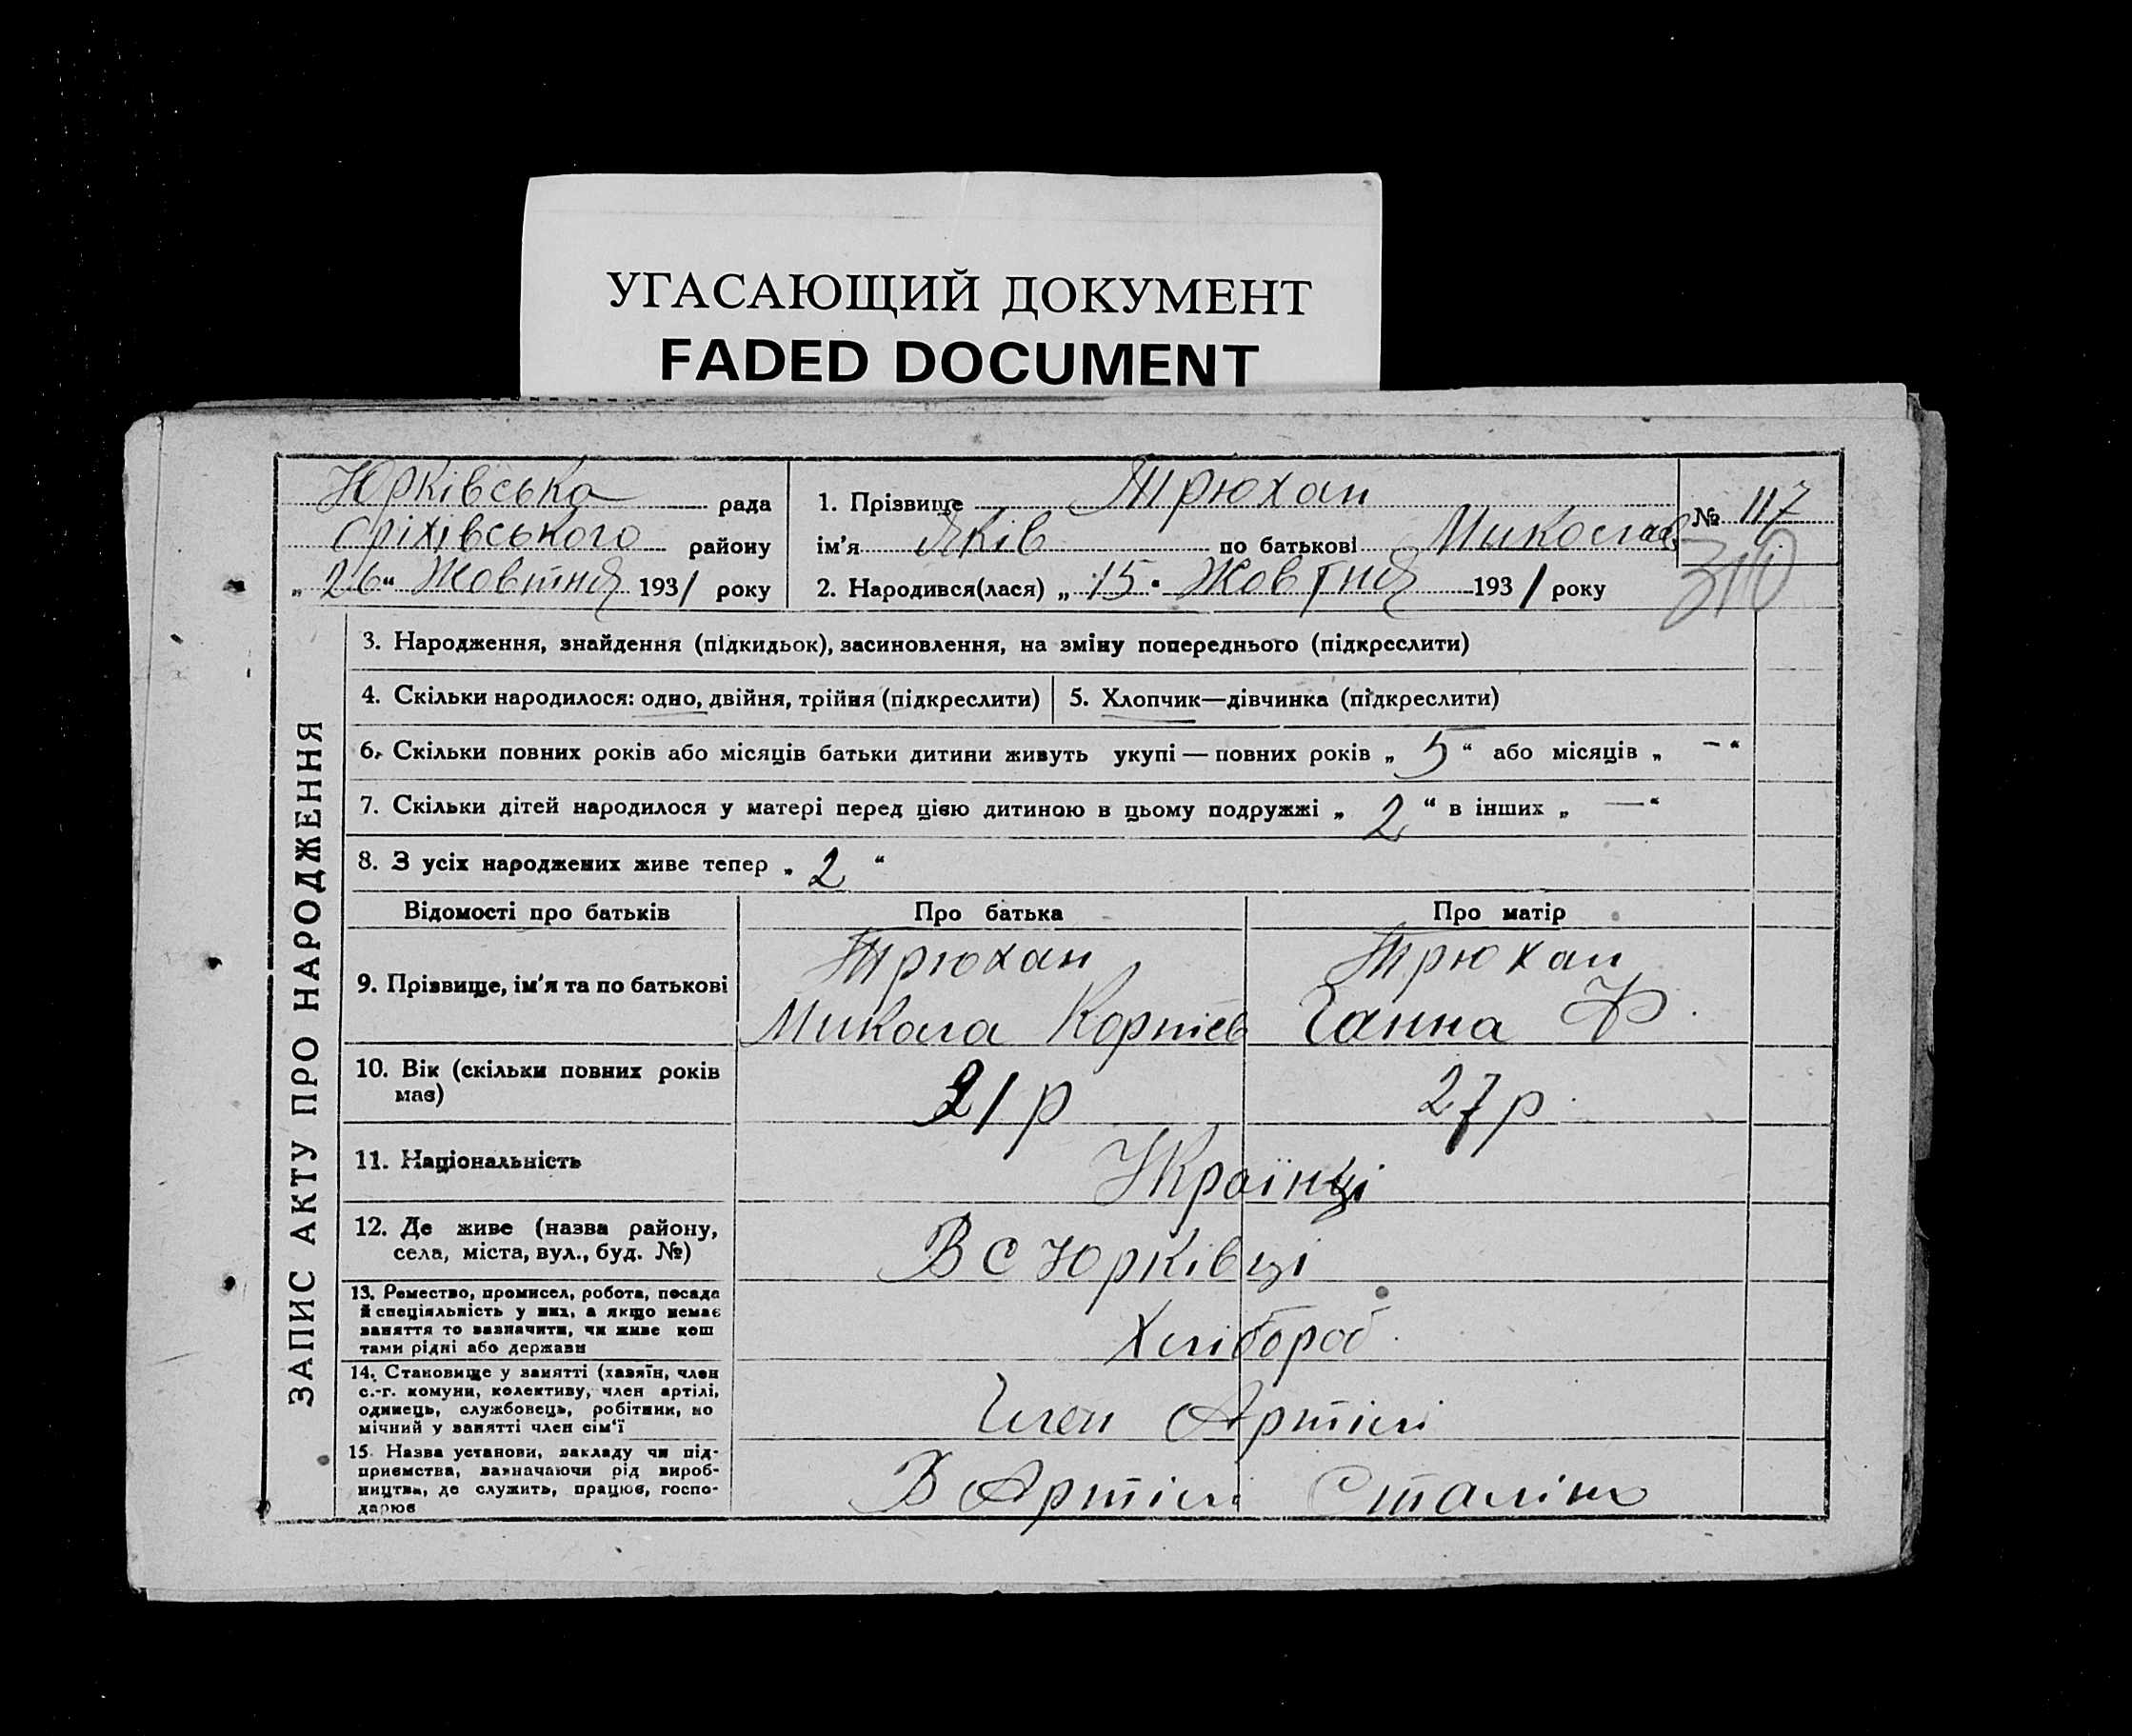 УГАСАЮЩИЙ ДОКУМЕНТ
FADED DOCUMENT
Юрківська рада
Оріхівського району
„26“ Жовтня 1931 року
1. Прізвище Трюхан
ім’я Яків по батькові Миколаєв
2. Народився(лася) „15“ Жовтня 1931 року
№ 117
310
ЗАПИС АКТУ ПРО НАРОДЖЕННЯ
3. Народження, знайдення (підкидьок), засиновлення, на зміну попереднього (підкреслити)
4. Скільки народилося: одно, двійня, трійня (підкреслити)
5. Хлопчик—дівчинка (підкреслити)
6. Скільки повних років або місяців батьки дитини живуть укупі — повних років „5“ або місяців „—“
7. Скільки дітей народилося у матері перед цією дитиною в цьому подружжі „2“ в інших „—“
8. З усіх народжених живе тепер „2“
Відомості про батьків Про батька Про матір
9. Прізвище, ім’я та по батькові
Трюхан
Микола Корнієв
Трюхан
Ганна Ф.
10. Вік (скільки повних років
має)
31 р
27 р.
11. Національність
Українці
12. Де живе (назва району,
села, міста, вул., буд. №)
В с Юрківці
13. Ремество, промисел, робота, посада
й спеціяльність у них, а якщо немає
заняття то зазначити, чи живе кош
тами рідні або держави
Хлібороб.
14. Становище у занятті (хазяїн, член
с.-г. комуни, колективу, член артілі,
одинець, службовець, робітник, по
мічний у занятті член сім‘ї
Член Артілі
15. Назва установи, закладу чи під-
приємства, зазначаючи рід вироб-
ництва, де служить, працює, госпо-
дарює
В Артілі Сталіна